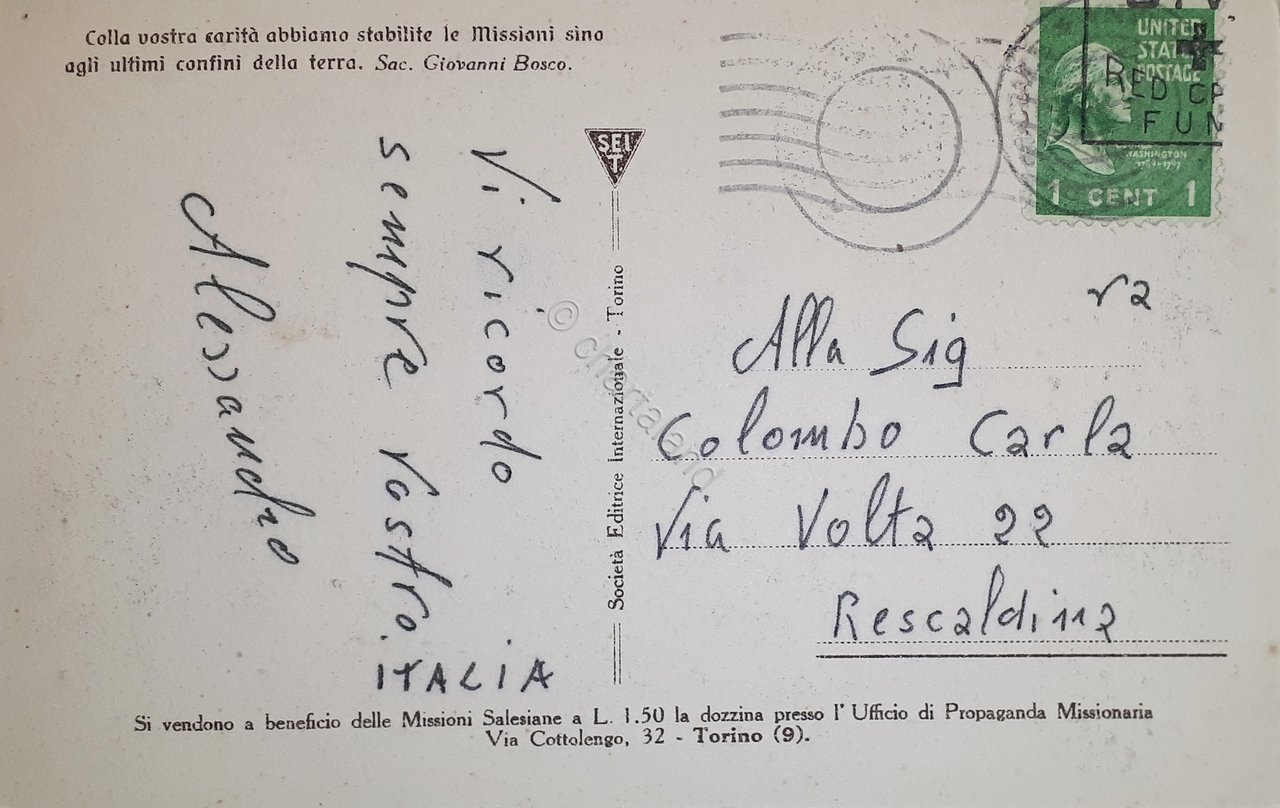 Colla vostra carità abbiamo stabilite le Missioni sino
agli ultimi confini della terra. Sac. Giovanni Bosco.
UNITED
STATES
POSTAGE
RED CR
FUN
WASHINGTON
1789-1797
1 CENT 1
SEI
T.
Vi ricordo
sempre Vostro.
Alessandro
ITALIA
Società Editrice Internazionale - Torino
© chartaland
Alla Sig ra
Colombo Carla
Via Volta 22
Rescaldina
Si vendono a beneficio delle Missioni Salesiane a L. 1.50 la dozzina presso l' Ufficio di Propaganda Missionaria
Via Cottolengo, 32 - Torino (9).